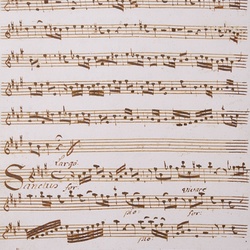 Largo
Sanctus for: vivace
pio for: